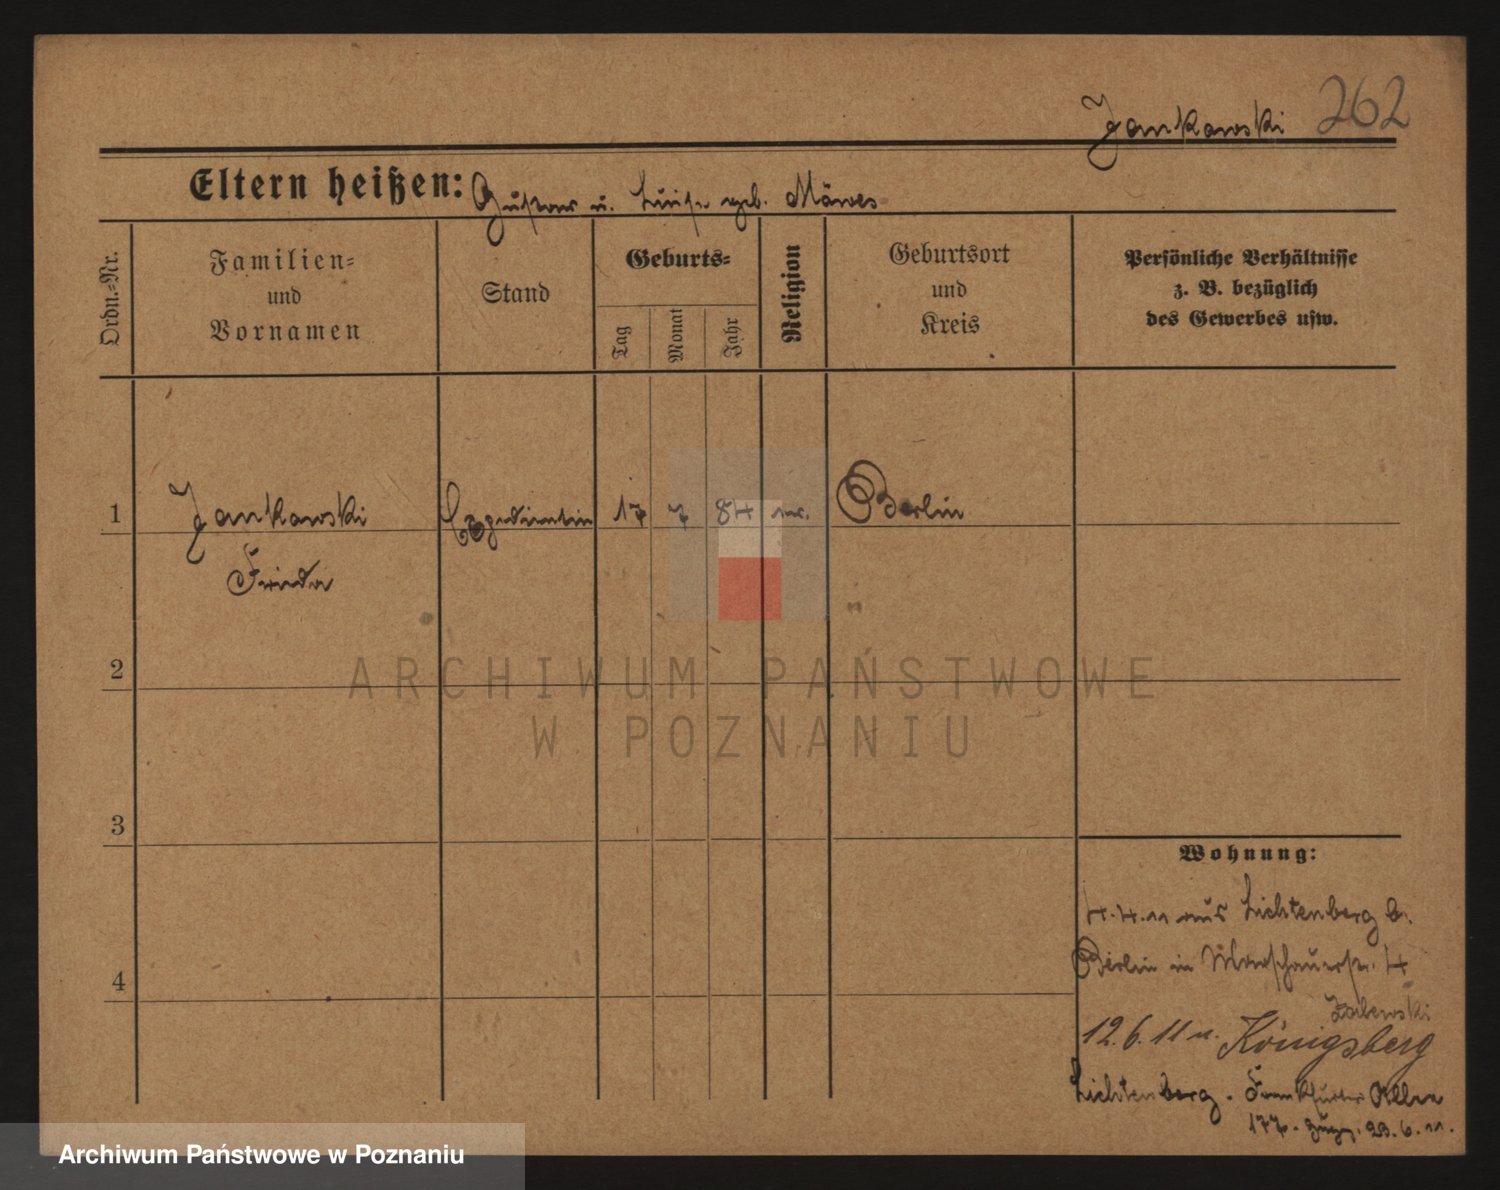 Jankowski 262
Eltern heißen: Gustav u. Luise geb. Mäwes
Ordn.-Nr.
Familien-
und
Vornamen
Stand
Geburts-
Tag
Monat
Jahr
Religion
Geburtsort
und
Kreis
Persönliche Verhältnisse
z. B. bezüglich
des Gewerbes usw.
1 Jankowski Expedientin 17 7 84 ev. Berlin
Frieda
2
3
4
Wohnung:
4.4.11 aus Lichtenberg b.
Berlin in Warschauerstr. 4
Zalewski
12.6.11 n. Königsberg
Lichtenberg. Frankfurter Allee
177. 23.6.11.
ARCHIWUM PAŃSTWOWE
W POZNANIU
Archiwum Państwowe w Poznaniu